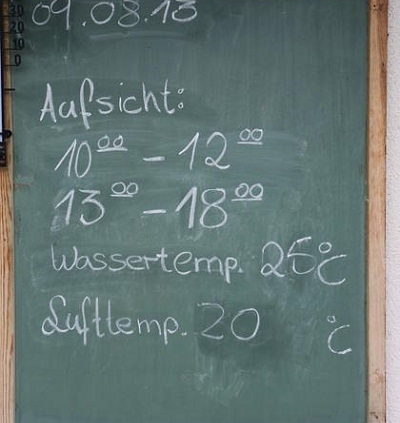 09.08.13
Aufsicht:
10 00 - 12 00
13 00 - 18 00
Wassertemp. 25°C
Lufttemp. 20 °C